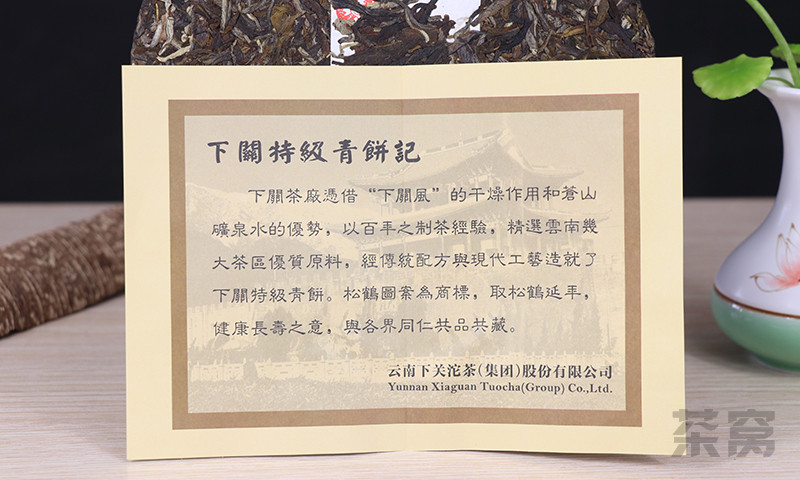 下關特級青餅記
下關茶廠憑借“下關風”的干燥作用和蒼山
礦泉水的優勢，以百年之制茶經驗，精選雲南幾
大茶區優質原料，經傳統配方與現代工藝造就了
下關特級青餅。松鶴圖案為商標，取松鶴延年，
健康長壽之意，與各界同仁共品共藏。
云南下关沱茶(集团)股份有限公司
Yunnan Xiaguan Tuocha(Group) Co.,Ltd.
茶窝